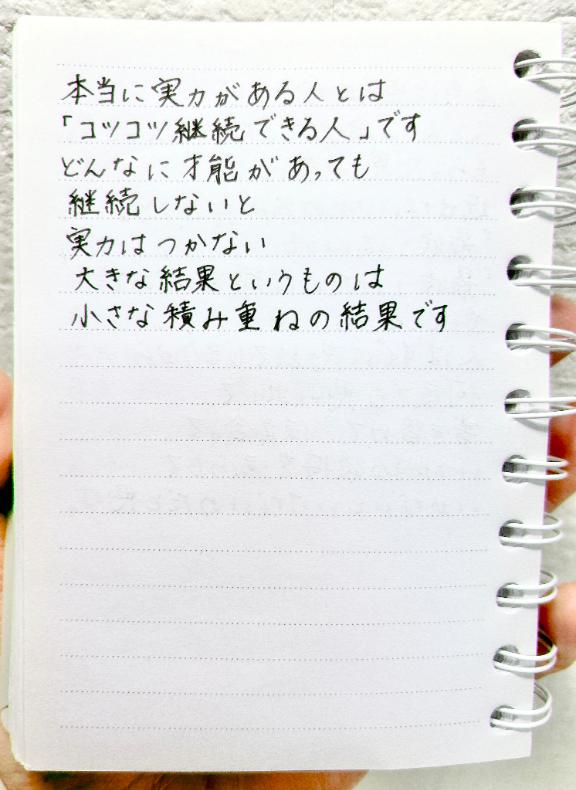 本当に実力がある人とは
「コツコツ継続できる人」です
どんなに才能があっても
継続しないと
実力はつかない
大きな結果というものは
小さな積み重ねの結果です